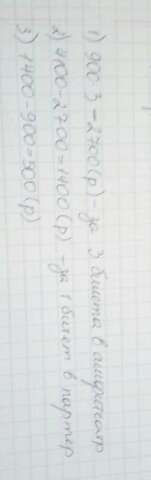 1) 900·3=2700(р) - за 3 билета в амфитеатр
2) 4100-2700=1400(р) - за 1 билет в партер
3) 1400-900=500(р)